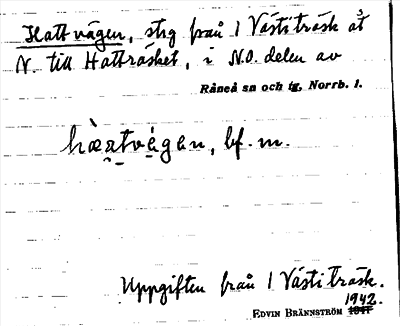 Hattvägen, stig från 1 Västiträsk åt
N. till Hatträsket, i N.O. delen av
Råneå sn och tg, Norrb. l.
hàṛtvę́gen, bf. m.
Uppgiften från 1 Västiträsk.
1942.
EDVIN BRÄNNSTRÖM